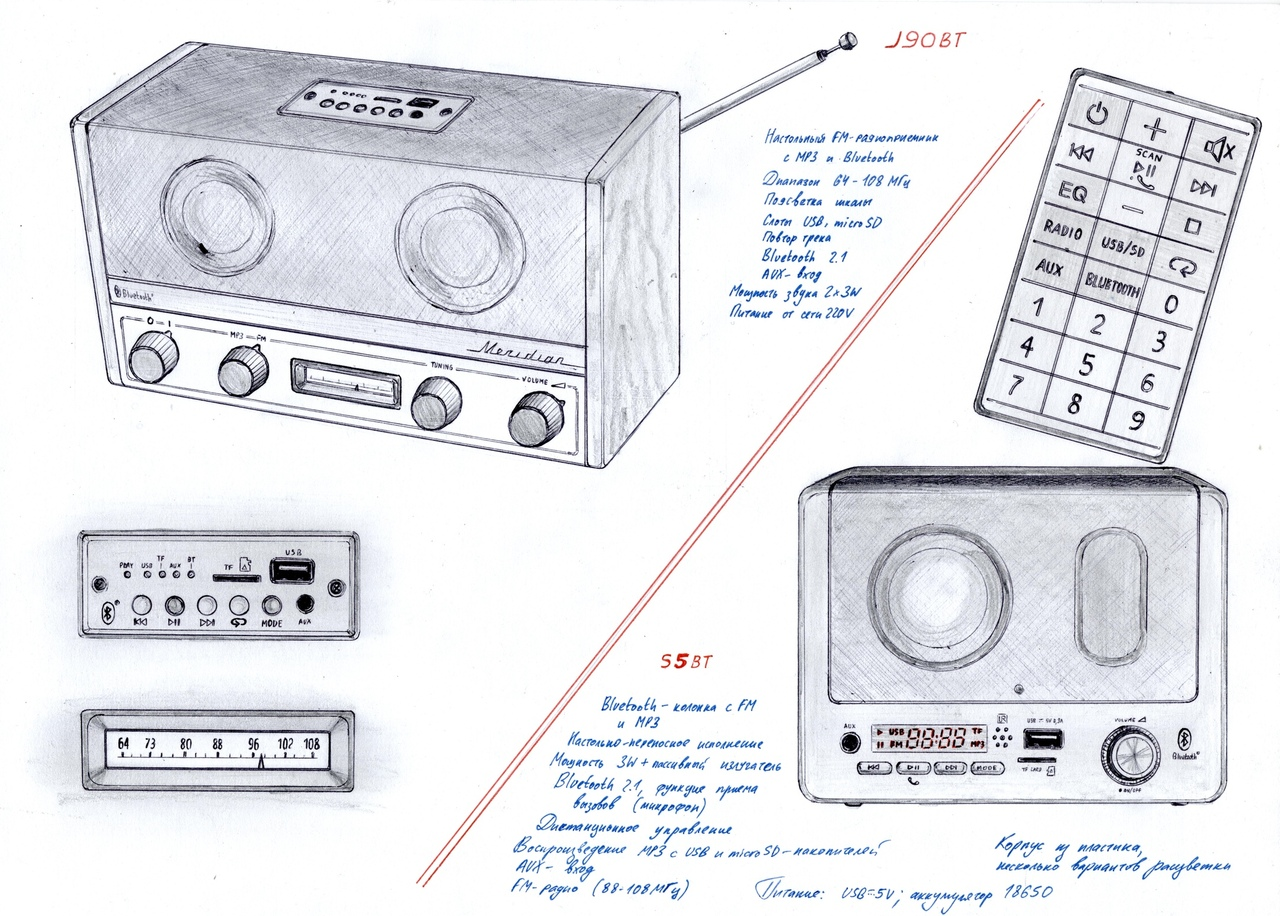 J90BT
Настольный FM-радиоприемник
с MP3 и Bluetooth
Диапазон 64-108 МГц
Подсветка шкалы
Слоты USB, microSD
Повтор трека
Bluetooth 2.1
AUX-вход
Мощность звука 2×3W
Питание от сети 220V
Bluetooth
Meridian
O - I
MP3 - FM
TUNING
VOLUME
SCAN
EQ
RADIO USB/SD
AUX BLUETOOTH 0
1 2 3
4 5 6
7 8 9
PLAY USB TF AUX BT
TF
USB
MODE AUX
64 73 80 88 96 102 108
S5BT
Bluetooth-колонка с FM
и MP3
Настольно-переносное исполнение
Мощность 3W + пассивный излучатель
Bluetooth 2.1, функция приема
вызовов (микрофон)
Дистанционное управление
Воспроизведение MP3 с USB и microSD-накопителей
AUX-вход
FM-радио (88-108МГц)
Питание: USB=5V; аккумулятор 18650
Корпус из пластика,
несколько вариантов расцветки
AUX
USB 88:88 TF
FM MP3
IR
USB
VOLUME
MODE
TF CARD
ON/OFF
Bluetooth